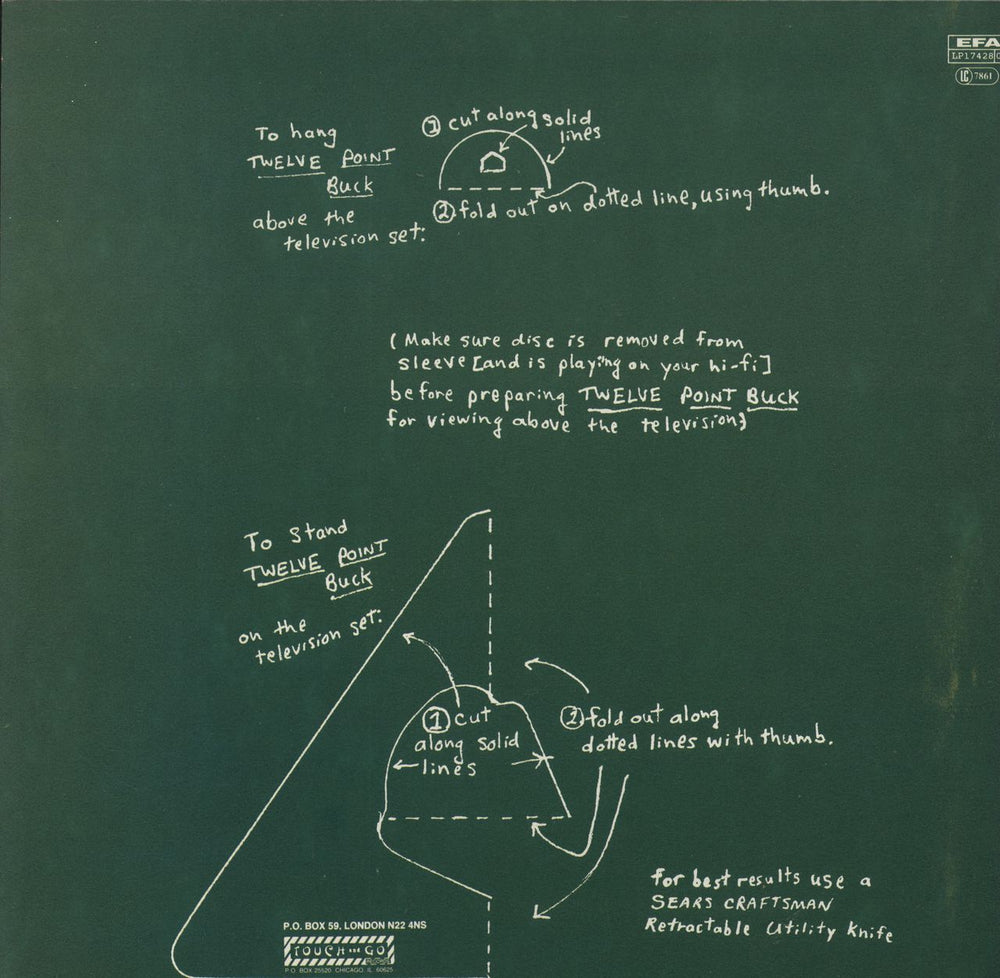 EFA
LP17428
LC 7861
To hang
TWELVE POINT
Buck
above the
television set:
① cut along solid
lines
② fold out on dotted line, using thumb.
(Make sure disc is removed from
sleeve [and is playing on your hi-fi]
before preparing TWELVE POINT BUCK
for viewing above the television)
To Stand
TWELVE POINT
Buck
on the
television set:
① cut
along solid
lines
② fold out along
dotted lines with thumb.
for best results use a
SEARS CRAFTSMAN
Retractable Utility Knife
P.O. BOX 59, LONDON N22 4NS
TOUCH AND GO
P.O. BOX 25520 CHICAGO, IL 60625